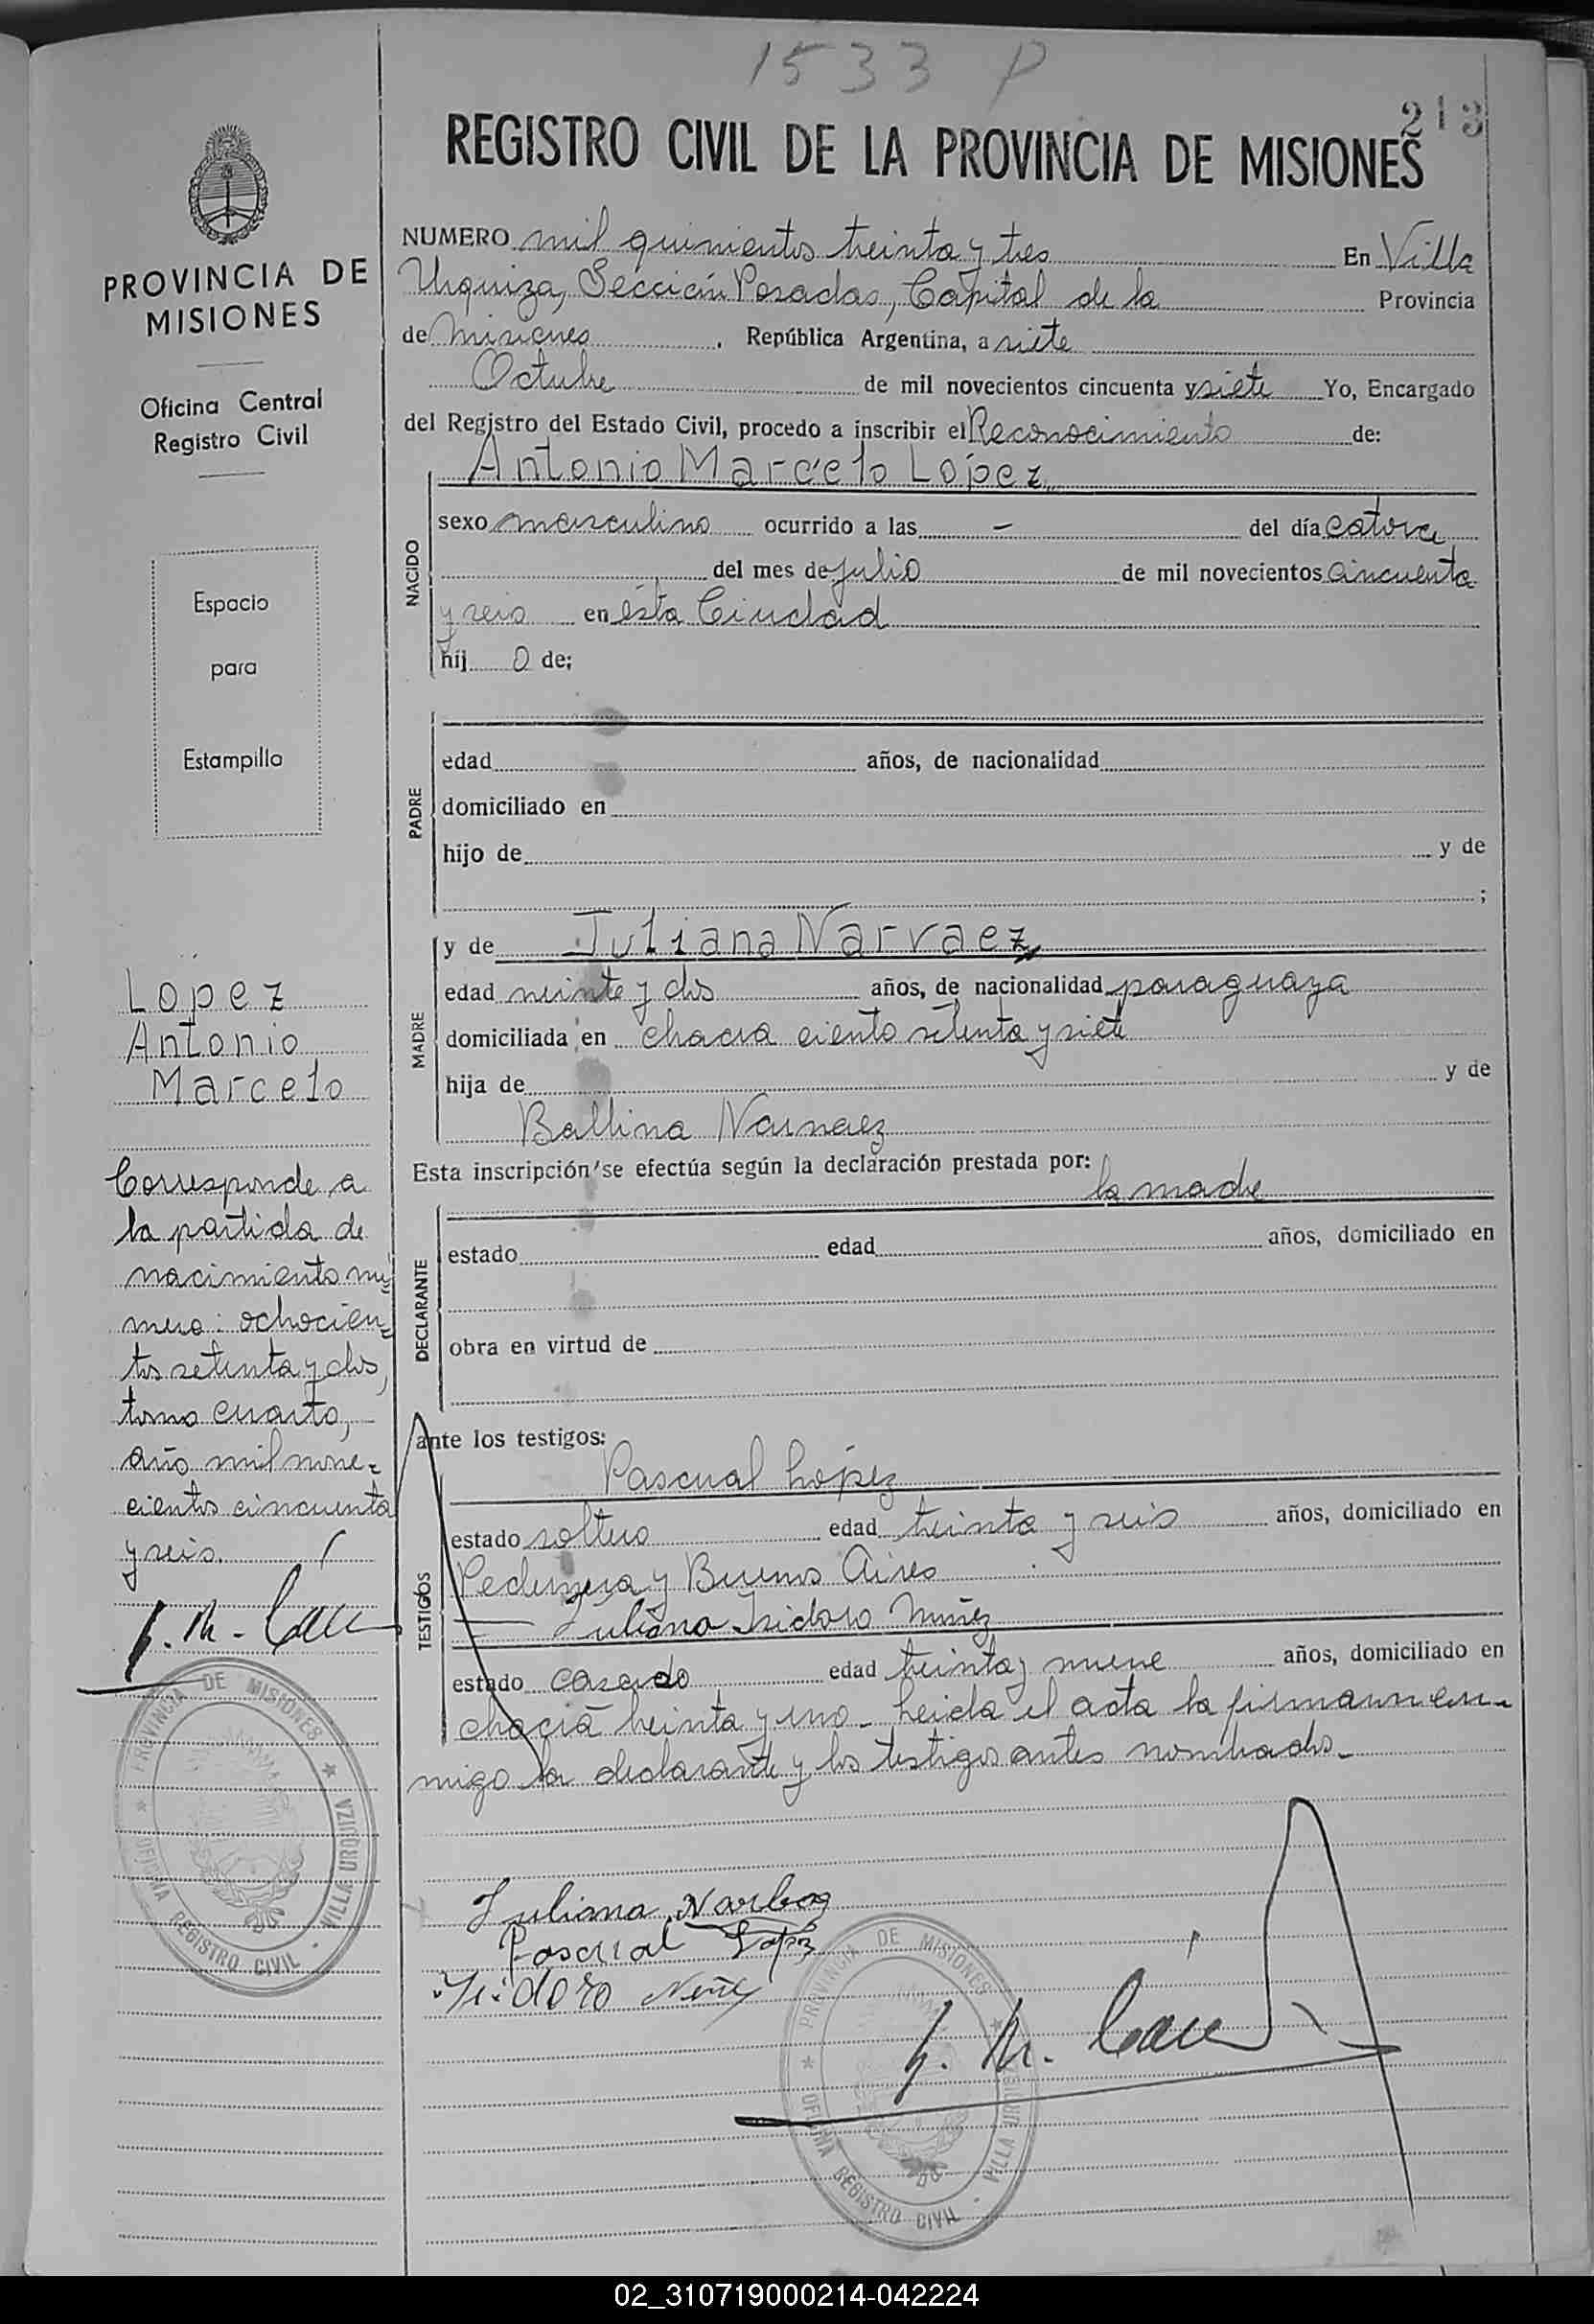 1533 P
213
REGISTRO CIVIL DE LA PROVINCIA DE MISIONES
PROVINCIA DE
MISIONES
Oficina Central
Registro Civil
Espacio
para
Estampilla
López
Antonio
Marcelo
Corresponde a
la partida de
nacimiento nú=
mero: ochocien=
tos setenta y dos,
tomo cuarto,
año mil nove=
cientos cincuenta
y seis.
PROVINCIA DE MISIONES * VILLA URQUIZA - OFICINA REGISTRO CIVIL *
NUMERO mil quinientos treinta y tres En Villa
Urquiza, Sección Posadas, Capital de la Provincia
de Misiones. República Argentina, a siete
Octubre de mil novecientos cincuenta y siete Yo, Encargado
del Registro del Estado Civil, procedo a inscribir el Reconocimiento de:
Antonio Marcelo López
NACIDO
sexo masculino ocurrido a las - del día catorce
del mes de julio de mil novecientos cincuenta
y seis en ésta Ciudad
hij o de;
PADRE
edad años, de nacionalidad
domiciliado en
hijo de y de
;
MADRE
y de Juliana Narvaez
edad veinte y dos años, de nacionalidad paraguaya
domiciliada en chacra ciento setenta y siete
hija de y de
Balbina Narvaez
Esta inscripción se efectúa según la declaración prestada por:
la madre
DECLARANTE
estado edad años, domiciliado en
obra en virtud de
ante los testigos:
TESTIGOS
Pascual López
estado soltero edad treinta y seis años, domiciliado en
Pedernera y Buenos Aires
Juliano Isidoro Nuñez
estado casado edad treinta y nueve años, domiciliado en
chacra treinta y uno. Leida el acta la firmaron con-
migo la declarante y los testigos antes nombrados.
Juliana
Pascual López
Isidoro Nuñez
PROVINCIA DE MISIONES * VILLA URQUIZA - OFICINA REGISTRO CIVIL *
02_310719000214-042224